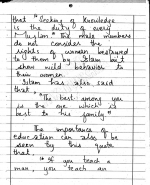 that "Seeking of Knowledge
is the duty of every
Muslim" the male members
do not consider the
rights of women bestowed
to them by Islam but
show wild behavior to
their women.
Islam has also said
that
"The best among you
is the one which is
best to his family"
The importance of
education can also be
seen by this quote
that
"If you teach a
man, you teach an